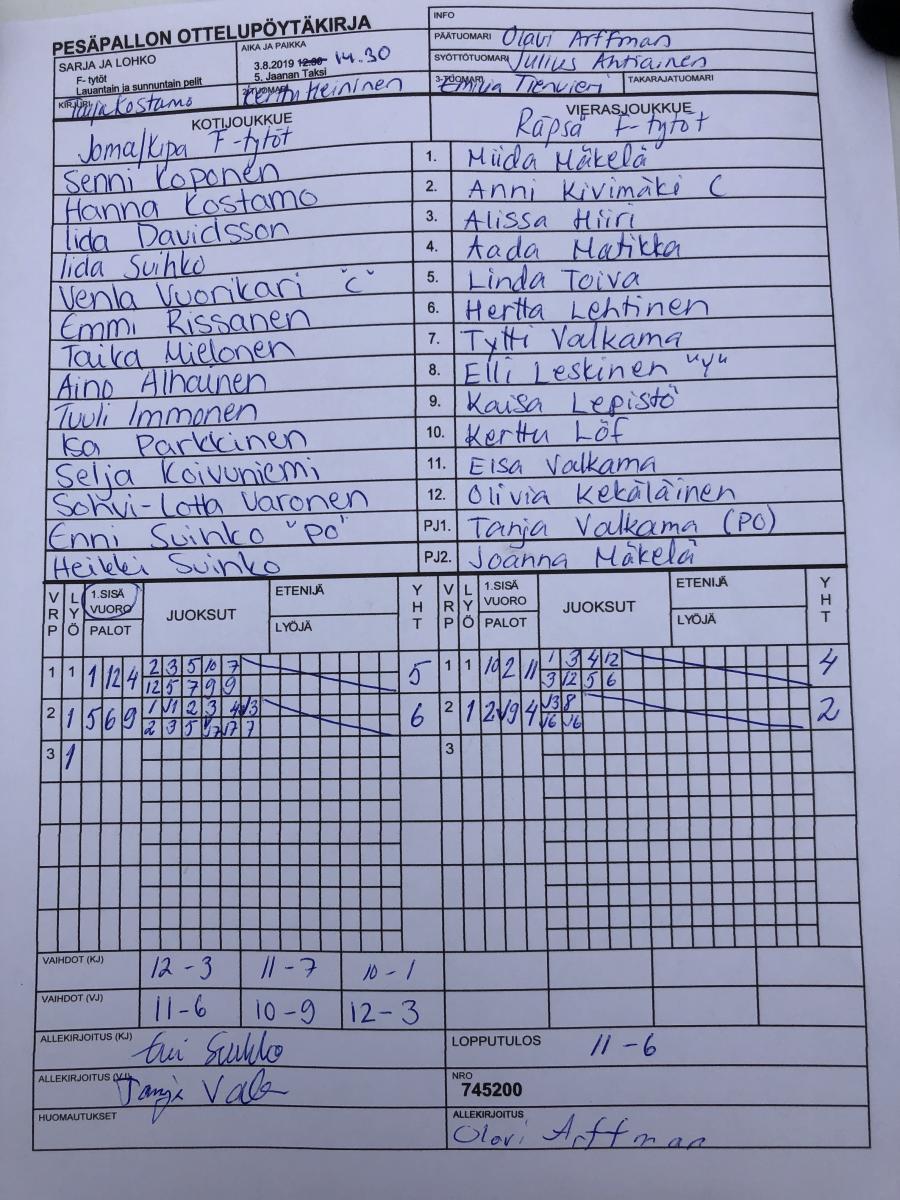 PESÄPALLON OTTELUPÖYTÄKIRJA
INFO
SARJA JA LOHKO
F- tytöt
Lauantain ja sunnuntain pelit
AIKA JA PAIKKA
3.8.2019 12.30 14.30
5. Jaanan Taksi
PÄÄTUOMARI Olavi Arffman
SYÖTTÖTUOMARI Julius Ahtiainen
KIRJURI Kostamo
2-TUOMARI Heininen
3-TUOMARI Emilia
TAKARAJATUOMARI
KOTIJOUKKUE
Joma/Kipa F-tytöt
VIERASJOUKKUE
Räpsä F-tytöt
Senni Koponen 1. Miida Mäkelä
Hanna Kostamo 2. Anni Kivimäki C
Iida Davidsson 3. Alissa Hiiri
Iida Suihko 4. Aada Matikka
Venla Vuorikari "C" 5. Linda Toiva
Emmi Rissanen 6. Hertta Lehtinen
Taika Mielonen 7. Tytti Valkama
Aino Alhainen 8. Elli Leskinen "Y"
Tuuli Immonen 9. Kaisa Lepistö
Isa Parkkinen 10. Kerttu Löf
Selja Koivuniemi 11. Elsa Valkama
Sohvi-Lotta Varonen 12. Olivia Kekäläinen
Enni Suihko "PO" PJ1. Tanja Valkama (PO)
Heikki Suihko PJ2. Joanna Mäkelä
VRP LYÖ 1.SISÄ VUORO PALOT JUOKSUT ETENIJÄ LYÖJÄ YHT VRP LYÖ 1.SISÄ VUORO PALOT JUOKSUT ETENIJÄ LYÖJÄ YHT
1 1 1 12 4 2 3 5 10 7 5 1 1 10 2 11 1 3 4 12 4
12 5 7 9 9 3 12 5 6
2 1 5 6 9 6 2 1 2 2
3 1 3
VAIHDOT (KJ) 12-3 11-7 10-1
VAIHDOT (VJ) 11-6 10-9 12-3
ALLEKIRJOITUS (KJ)
LOPPUTULOS 11-6
ALLEKIRJOITUS (VJ) Tanja
NRO
745200
HUOMAUTUKSET
ALLEKIRJOITUS
Olavi Arffman